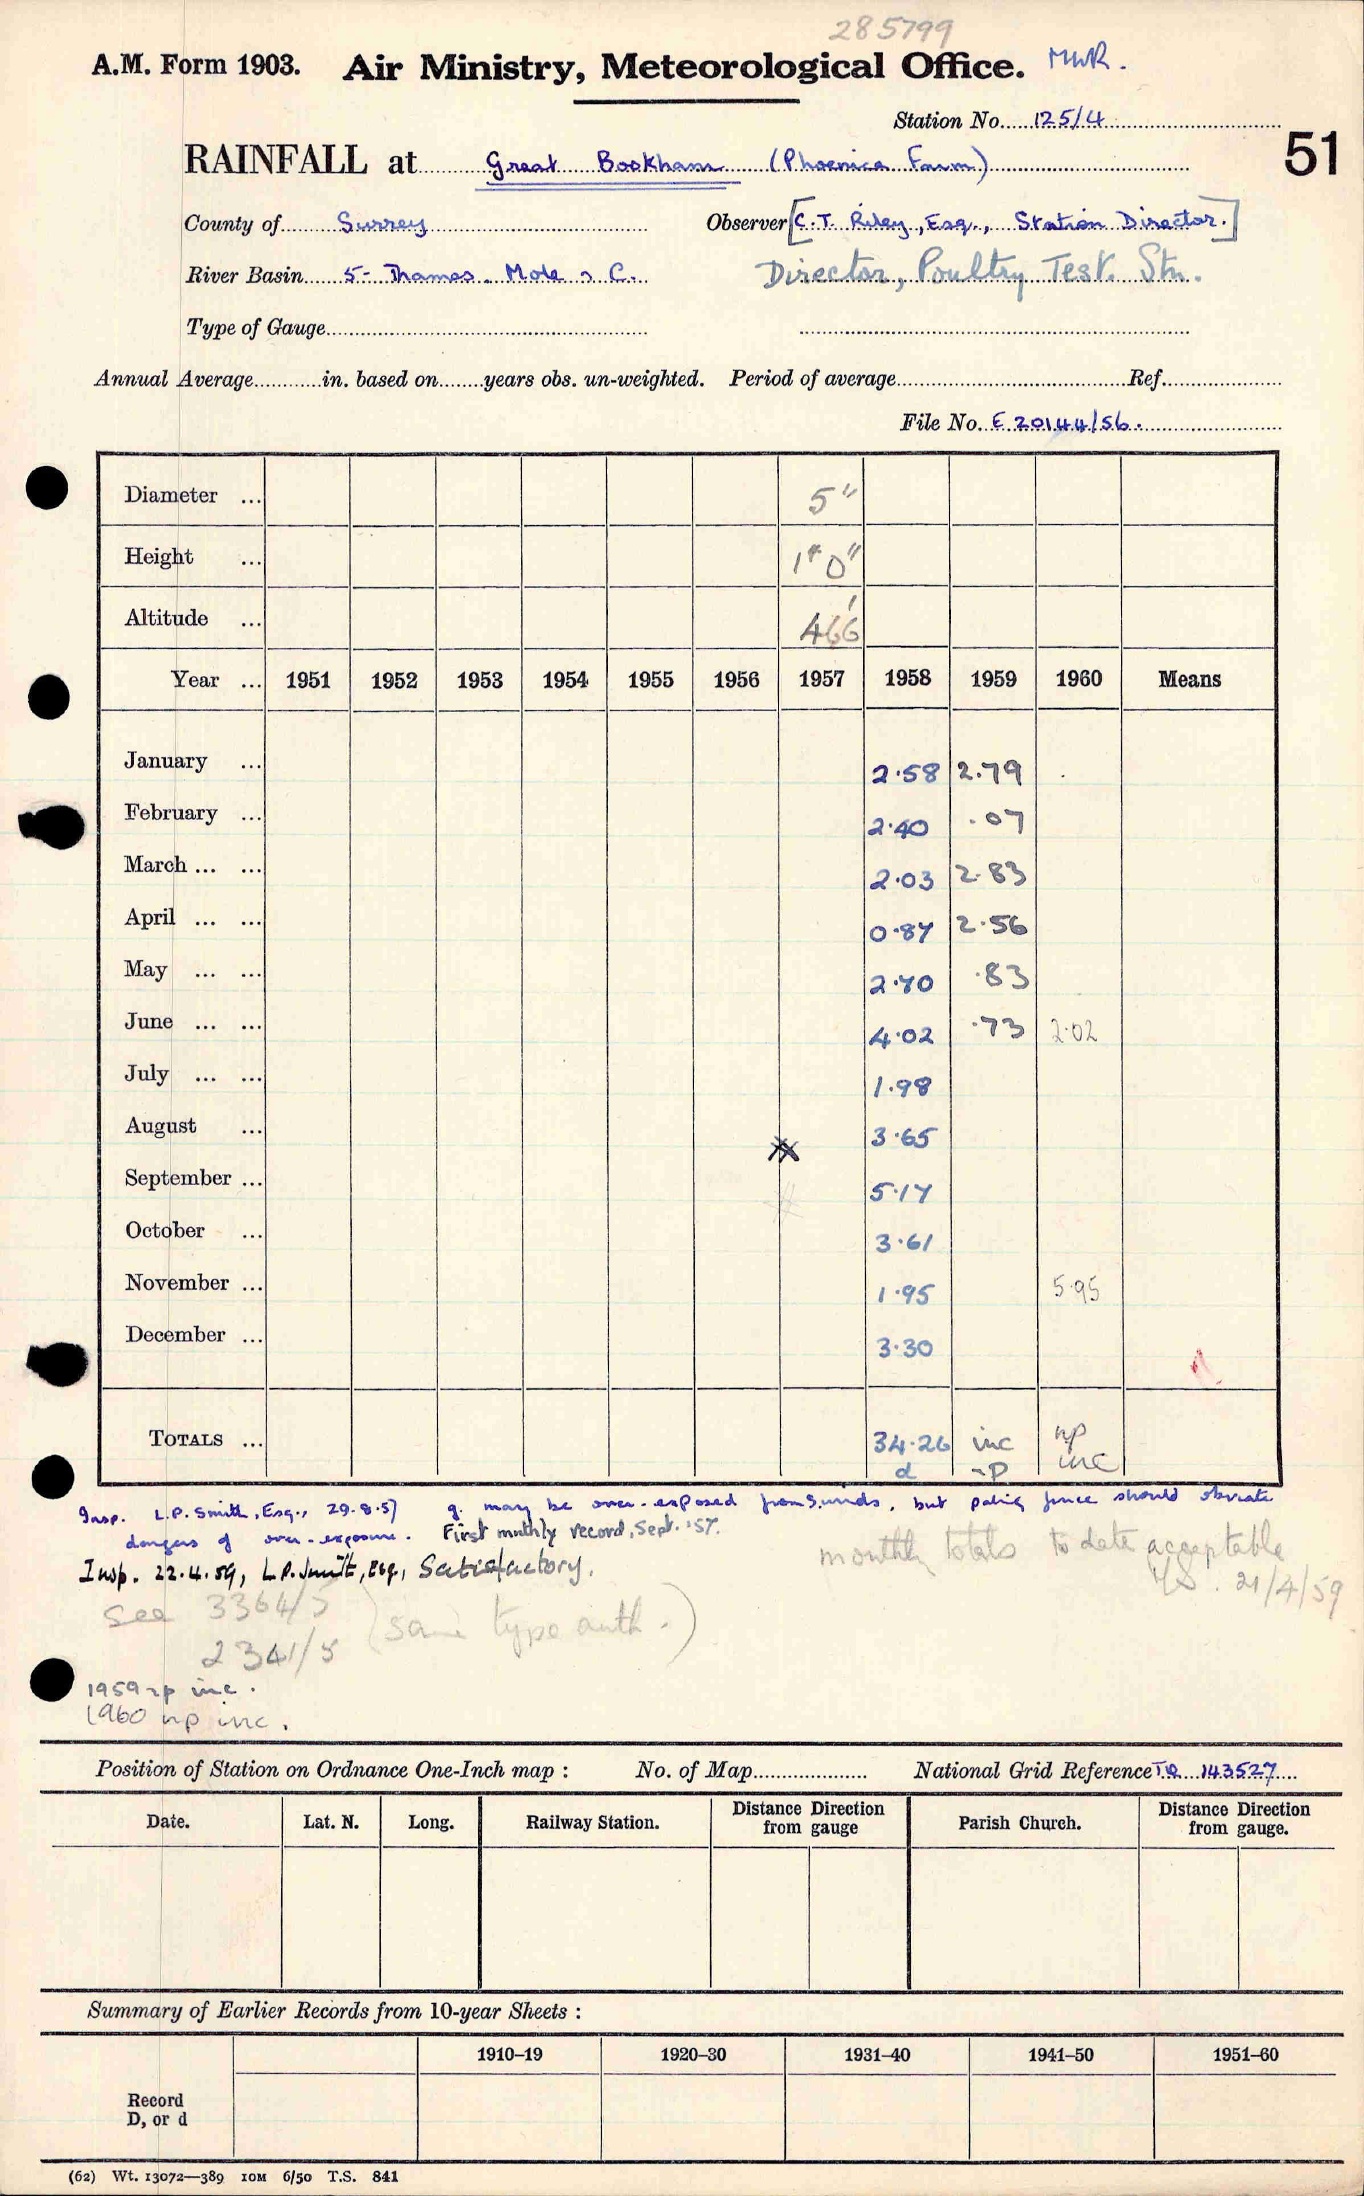 285799
A.M. Form 1903. Air Ministry, Meteorological Office. MWR.
Station No. 125/4
51
RAINFALL at Great Bookham (Phoenice Farm)
County of Surrey Observer [C.T. Riley, Esq., Station Director.]
River Basin 5- Thames. Mole C. Director, Poultry Test. Stn.
Type of Gauge
Annual Average in. based on years obs. un-weighted. Period of average Ref.
File No. E 20144/56.
Diameter ... 5"
Height ... 1' 0"
Altitude ... 466'
Year ... 1951 1952 1953 1954 1955 1956 1957 1958 1959 1960 Means
January ... 2.58 2.79
February ... 2.40 .07
March ... ... 2.03 2.83
April ... ... 0.87 2.56
May ... ... 2.70 .83
June ... ... 4.02 .73 2.02
July ... ... 1.98
August ... 3.65
September ... 5.17
October ... 3.61
November ... 1.95 5.95
December ... 3.30
TOTALS ... 34.26 inc np
d np inc
Insp. L.P. Smith, Esq., 29.8.57 g. may be over-exposed from S. winds, but paling fence should obviate
dangers of over-exposure. First monthly record, Sept. '57.
monthly totals to date acceptable
Insp. 22.4.59, L.P. Smith, Esq., Satisfactory.
21/4/59
See 3364/5
2341/5 (same type auth.)
1959 np inc.
1960 np inc.
Position of Station on Ordnance One-Inch map : No. of Map National Grid Reference TQ 143527
Date. Lat. N. Long. Railway Station. Distance Direction from gauge Parish Church. Distance Direction from gauge.
Summary of Earlier Records from 10-year Sheets :
1910–19 1920–30 1931–40 1941–50 1951–60
Record
D, or d
(62) Wt. 13072—389 10M 6/50 T.S. 841